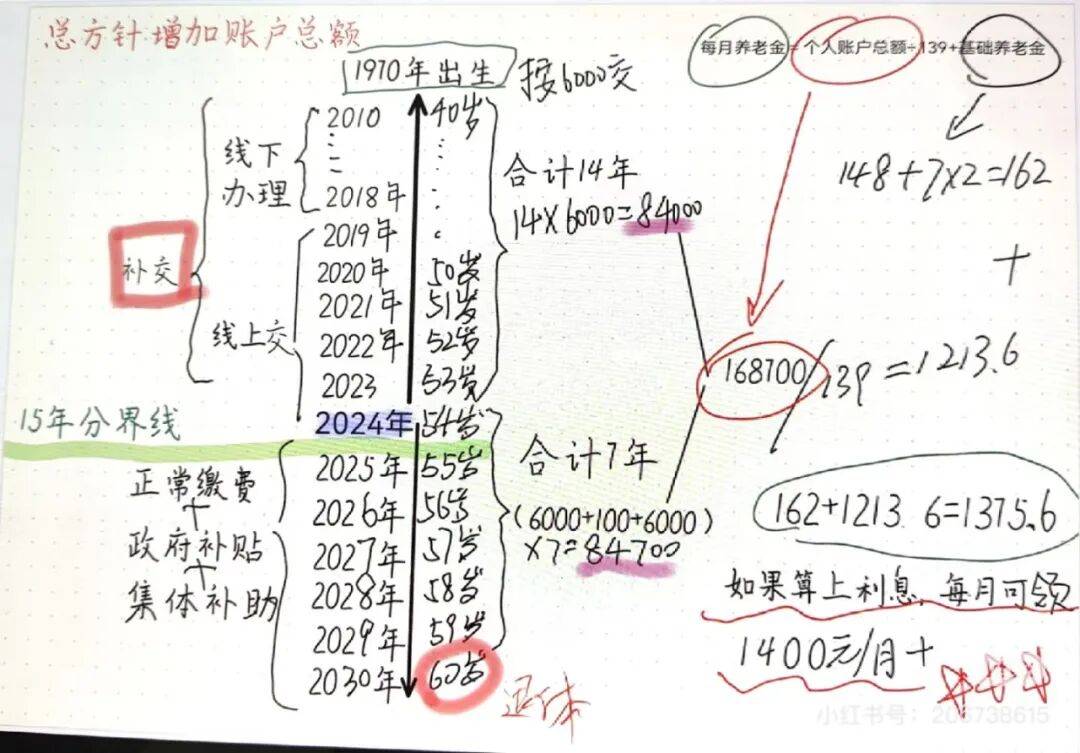 总方针增加账户总额
每月养老金=个人账户总额÷139+基础养老金
1970年出生
按6000交
2010 40岁
2018年
2019年
2020年 50岁
2021年 51岁
2022年 52岁
2023 53岁
2024年 54岁
2025年 55岁
2026年 56岁
2027年 57岁
2028年 58岁
2029年 59岁
2030年 60岁
退休
线下
办理
补交
线上交
15年分界线
正常缴费
+
政府补贴
+
集体补助
合计14年
14×6000=84000
合计7年
(6000+100+6000)
×7=84700
148+7×2=162
+
168700/139=1213.6
162+1213.6=1375.6
如果算上利息,每月可领
1400元/月+
小红书号:206738615